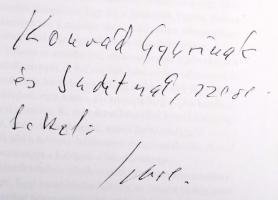 Konrád Gyurinak
és Juditnak, szere-
tettel:
Imre.